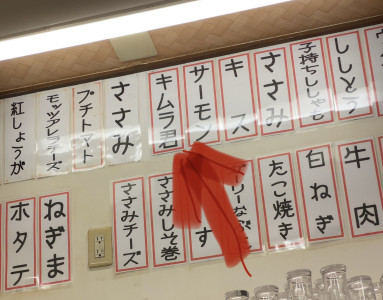 ししとう
子持ちししゃも
ささみ
キス
サーモン
キムラ君
ささみ
プチトマト
モッツアレラチーズ
紅しょうが
牛肉
白ねぎ
たこ焼き
ささみしそ巻
ささみチーズ
ねぎま
ホタテ